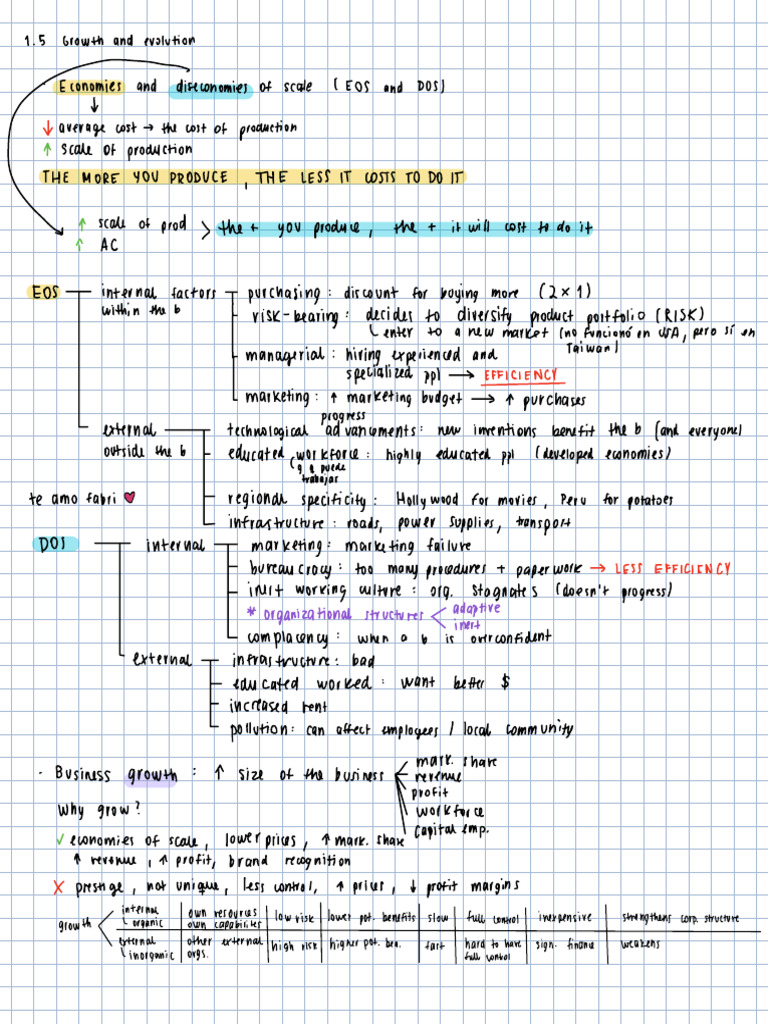 1.5 Growth and evolution
Economies and diseconomies of scale (EOS and DOS)
↓ average cost → the cost of production
↑ scale of production
THE MORE YOU PRODUCE, THE LESS IT COSTS TO DO IT
↑ scale of prod > the + you produce, the + it will cost to do it
↑ AC
EOS internal factors purchasing: discount for buying more (2x1)
within the b risk-bearing: decides to diversify product portfolio (RISK)
enter to a new market (no funcionó en USA, pero sí en
Taiwan)
managerial: hiring experienced and
specialized ppl → EFFICIENCY
marketing: ↑ marketing budget → ↑ purchases
progress
external technological advancements: new inventions benefit the b (and everyone)
outside the b educated workforce: highly educated ppl (developed economies)
g q puede
trabajar
te amo fabri ♥ regional specificity: Hollywood for movies, Peru for potatoes
infrastructure: roads, power supplies, transport
DOS internal marketing: marketing failure
bureaucracy: too many procedures + paperwork → LESS EFFICIENCY
inert working culture: org. stagnates (doesn't progress)
* organizational structures < adaptive
inert
complacency: when a b is overconfident
external infrastructure: bad
educated worked: want better $
increased rent
pollution: can affect employees / local community
· Business growth: ↑ size of the business mark. share
revenue
profit
workforce
capital emp.
Why grow?
✓ economies of scale, lower prices, ↑ mark. share
↑ revenue, ↑ profit, brand recognition
X prestige, not unique, less control, ↑ prices, ↓ profit margins
growth < internal organic | own resources own capabilites | low risk | lower pot. benefits | slow | full control | inexpensive | strengthens corp. structure
external inorganic | other external orgs. | high risk | higher pot. ben. | fast | hard to have full control | sign. finance | weakens